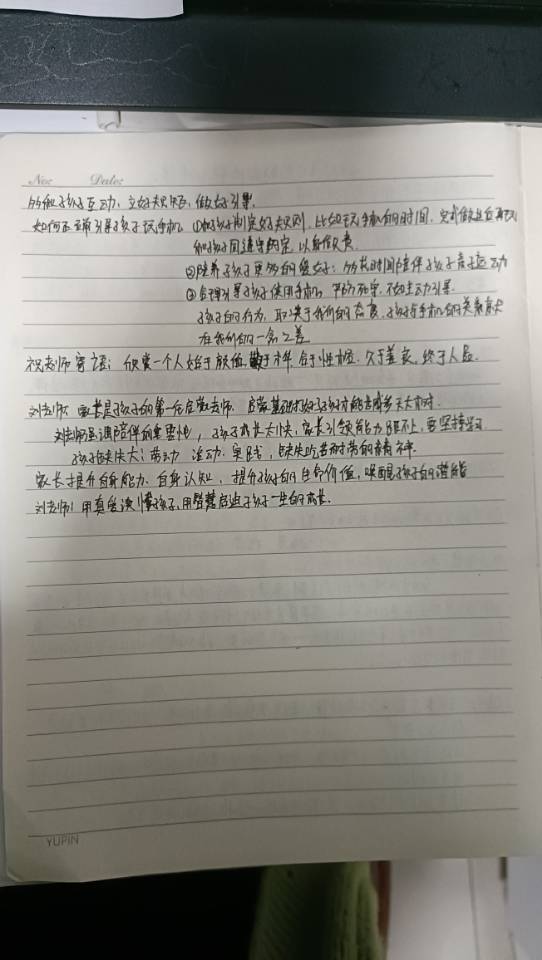 No:    Date:
多和孩子互动，立好规矩，做好引导。
如何正确引导孩子玩手机 ①和孩子制定好规则，比如玩手机的时间，完成做业后再玩
和孩子同遵守约定，以身做责
②陪养孩子更多的爱好：多花时间陪伴孩子亲子运动
③合理引导孩子使用手机，严防死守，不如主动引导。
孩子的行为，取决于我们的态度，孩子与手机的关系
在我们的一念之差
祝老师寄语：欣赏一个人始于颜值，于才华，合于性格，久于善良，终于人品。
刘老师：家长是孩子的第一任启蒙老师，基础打好孩子才能
刘老师强调陪伴的重要性，孩子成长太快，家长引领能力跟不上，要坚持学习
孩子缺失大：劳动 活动 实践，缺失吃苦耐劳的精神
家长提升自身能力、自身认知，提升孩子的生命价值，唤醒孩子的潜能
刘老师：用真爱读懂孩子，用智慧启迪孩子一生的成长。
YUPIN